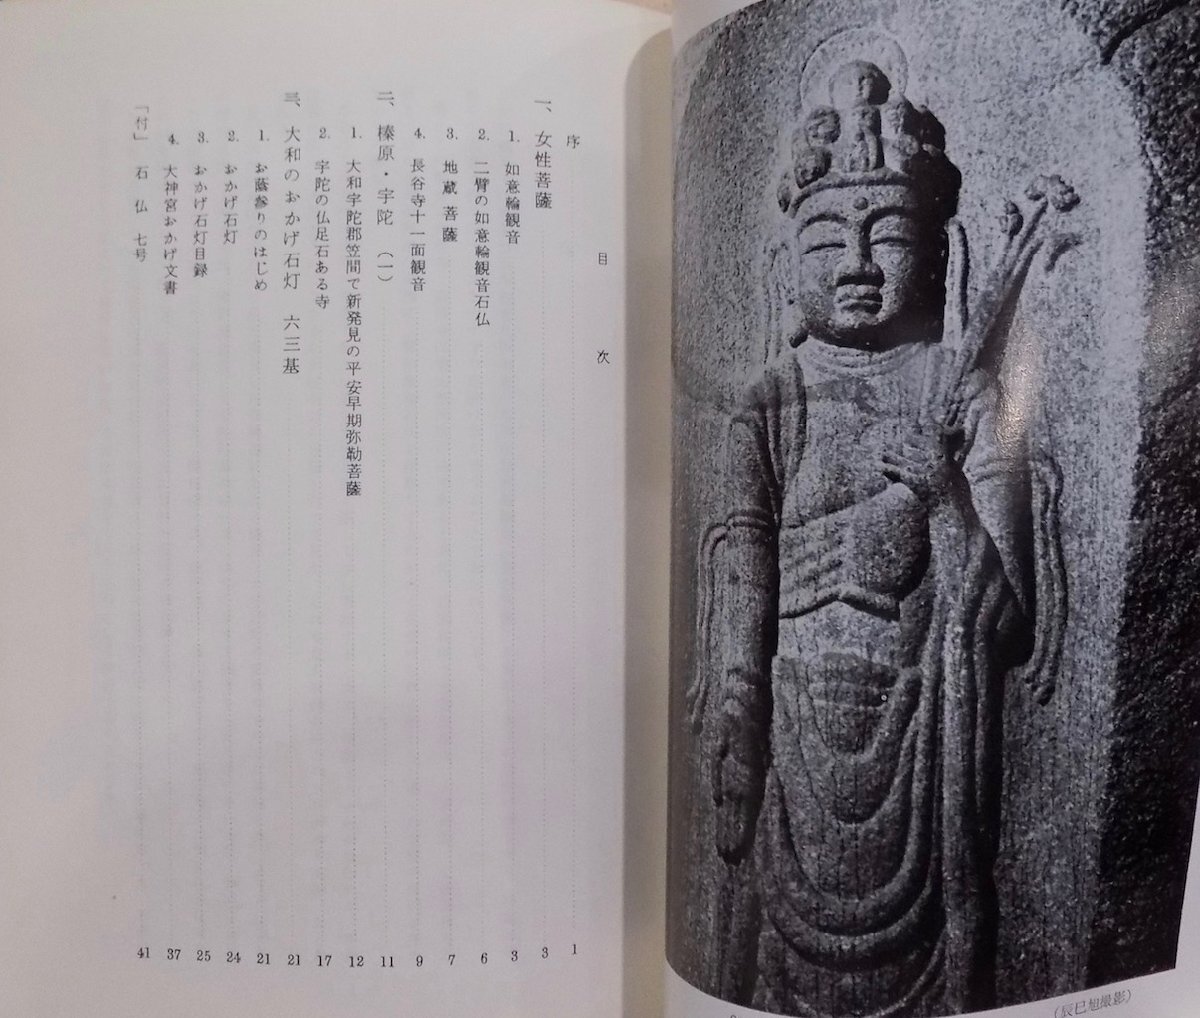 目次
序 1
一、女性菩薩 3
1. 如意輪観音 3
2. 二臂の如意輪観音石仏 6
3. 地蔵菩薩 7
4. 長谷寺十一面観音 9
二、榛原・宇陀 (一) 11
1. 大和宇陀郡笠間で新発見の平安早期弥勒菩薩 12
2. 宇陀の仏足石ある寺 17
三、大和のおかげ石灯 六三基 21
1. お蔭参りのはじめ 21
2. おかげ石灯 24
3. おかげ石灯目録 25
4. 大神宮おかげ文書 37
「付」 石仏 七号 41
(辰巳旭撮影)